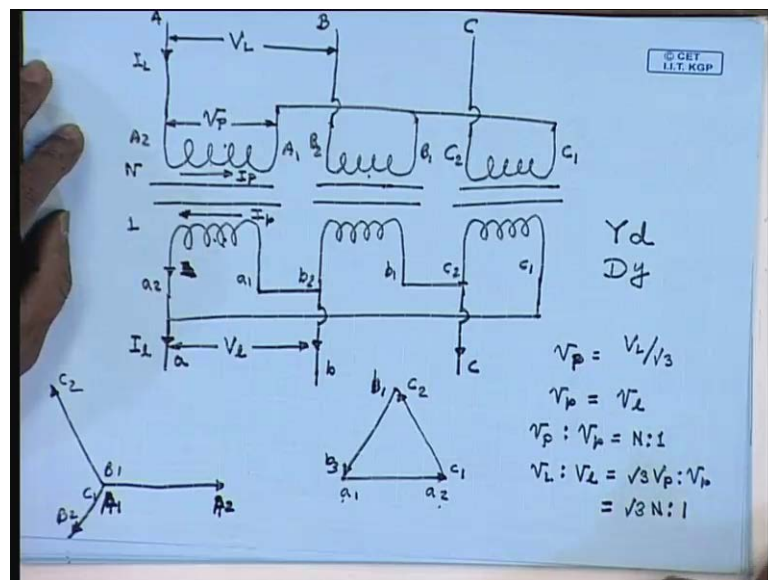 A B C
© CET
I.I.T. KGP
I_L V_L
V_P
A2 A1 B2 B1 C2 C1
N I_P
I_p
1
a2 a1 b2 b1 c2 c1
Yd
Dy
I_l a V_l b C
V_P = V_L/√3
V_p = V_l
V_P : V_p = N:1
V_L : V_l = √3 V_P : V_p
= √3 N : 1
C2
B1
C1 A1 A2
B2
b1 C2
a1 a2 c1